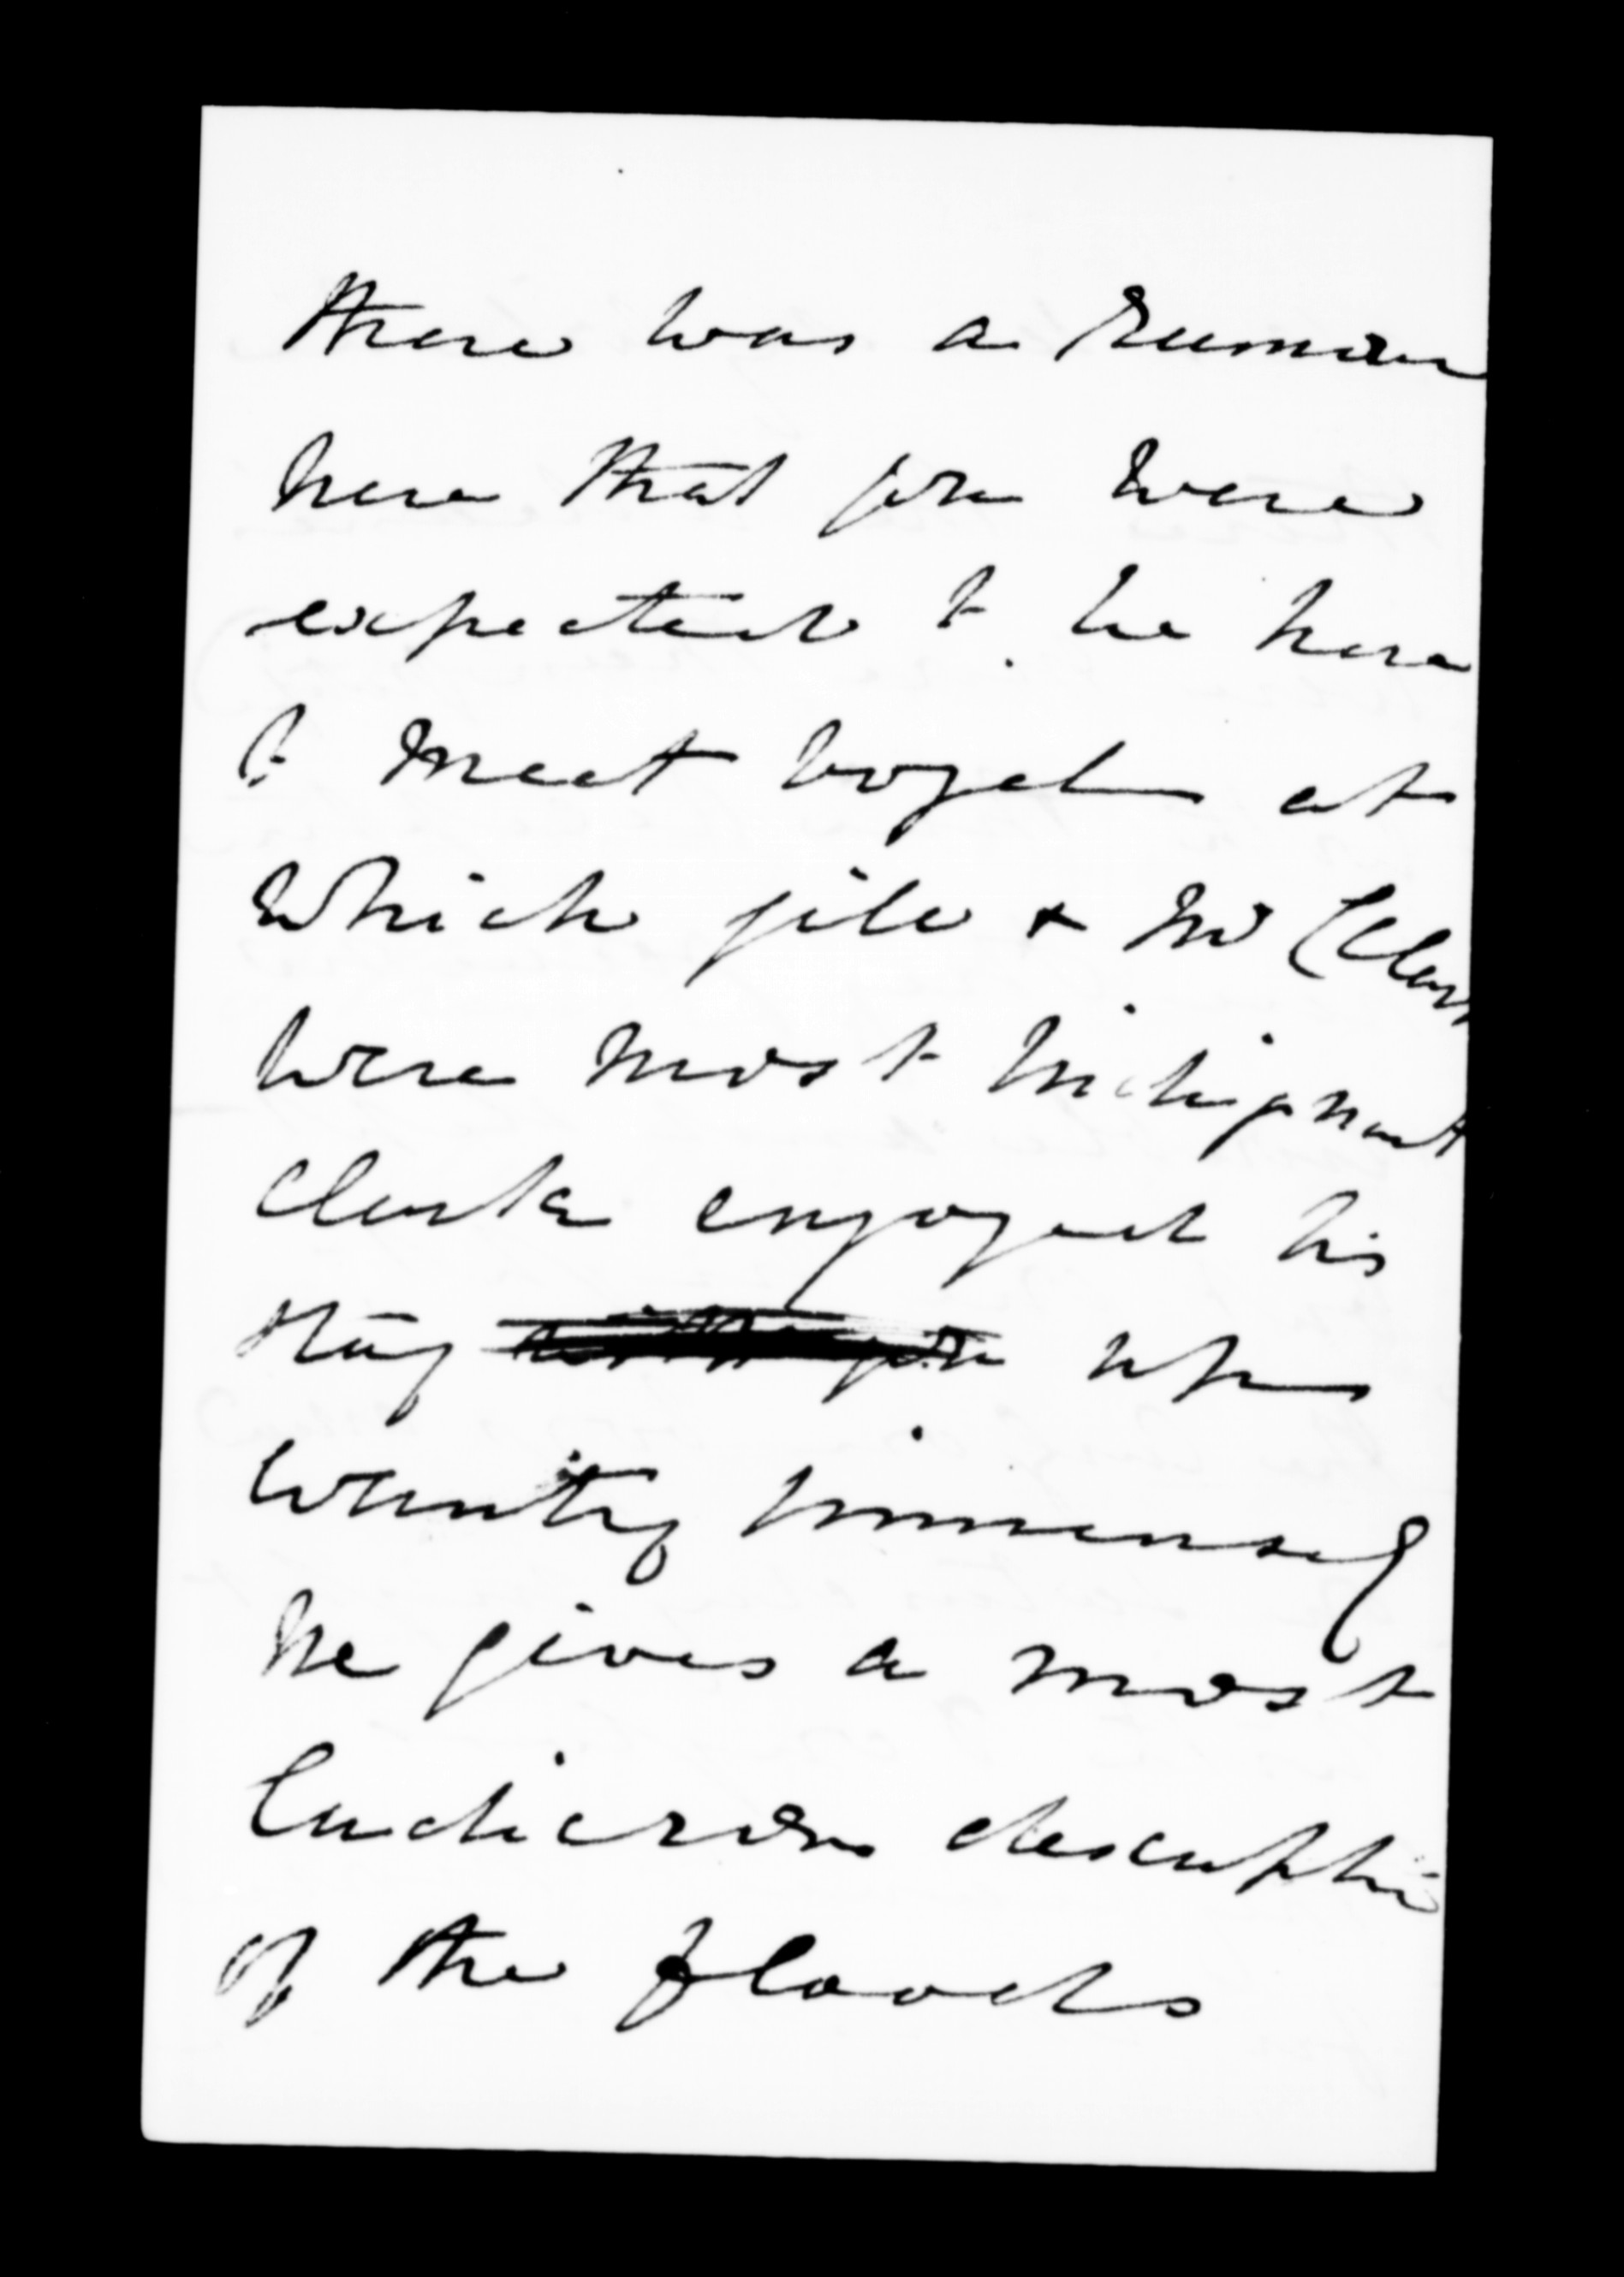 there was a rumour
here that you were
expected to be here
to meet Vogel at
which file & Mr
were most indignant
Clarke enjoyed his
stay up
country immensely
he gives a most
ludicrous descriptio
of the floods